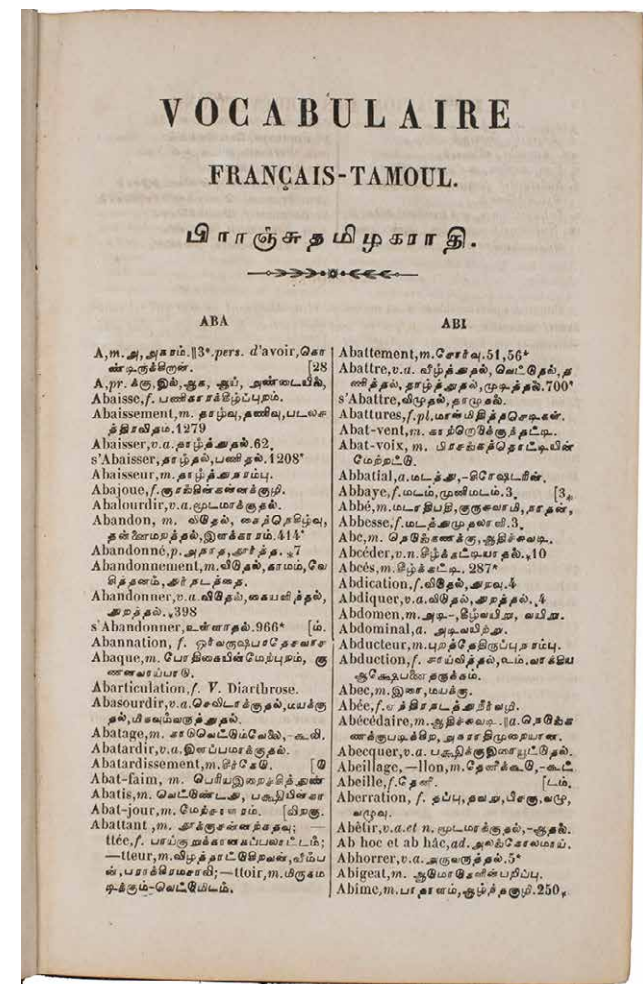 VOCABULAIRE
FRANÇAIS-TAMOUL.
பிராஞ்சுதமிழகராதி.
ABA
A,m.அ,அகரம்.‖3ᵉ.pers. d'avoir,கொ
ண்டிருக்கிறான். [28
A,pr. க்கு,இல்,ஆக, ஆய், அண்டையில்,
Abaisse,f. பணிகாரக்கீழ்ப்புறம்.
Abaissement,m. தாழ்வு,தணிவு,படலச
த்திரவிதம்.1279
Abaisser,v.a.தாழ்த்துதல்.62,
s'Abaisser,தாழ்தல்,பணிதல்.1208*
Abaisseur,m.தாழ்த்துநரம்பு.
Abajoue,f.குரங்கின்கன்னக்குழி.
Abalourdir,v.a.மூடமாக்குதல்.
Abandon, m. விடுதல், கைந்நெகிழ்வு,
தன்னைமறத்தல்,இளக்காரம்.414*
Abandonné,p.அநாத,தூர்த்த.,7
Abandonnement,m.விடுதல்,காமம்,வே
சித்தனம்,துர்நடத்தை.
Abandonner,v.a.விடுதல்,கையளித்தல்,
துறத்தல்.,398
s'Abandonner,உள்ளாதல்.966* [ம்.
Abannation, f. ஓர்வருஷபரதேசவாச
Abaque,m. போதிகையின்மேற்புறம், கு
ணனவாய்பாடு.
Abarticulation,f. V. Diarthrose.
Abasourdir,v.a.செவிடாக்குதல்,மயக்கு
தல்,மிகவும்வருத்துதல்.
Abatage,m. காடுவெட்டும்வேலை,-கூலி.
Abatardir,v.a.இளப்பமாக்குதல்.
Abatardissement,m.கீழ்கேடு.
Abat-faim, m. பெரியஇறைச்சித்துண்
Abatis,m. வெட்டுண்டது, பக்ஷியின்கா
Abat-jour,m. மேற்சாளரம். [விறகு.
Abattant ,m. தூக்குசன்னற்கதவு; —
ttée,f. பாய்குறுக்கானகப்பலாட்டம்;
—tteur,m.விழத்தாட்டுகிறவன்,வீம்ப
ன்,பராக்கிரமசாலி;—ttoir,m.மிருகம
டிக்கும்-வெட்டுமிடம்.
ABI
Abattement,m.சோர்வு.51,56*
Abattre,v.a. வீழ்த்துதல், வெட்டுதல்,த
ணித்தல், தாழ்த்துதல்,முடித்தல்.700*
s'Abattre,விழுதல், தாழுதல்.
Abattures,f.pl.மான்மிதித்தசெடிகள்.
Abat-vent, m. காற்றொடுக்குந்தட்டி.
Abat-voix, m. பிரசங்கத்தொட்டியின்
மேற்றட்டு.
Abbatial,a.மடத்து,-சிரேஷ்டரின்.
Abbaye,f.மடம்,முனிமடம்.3, [3,
Abbé,m.மடாதிபதி,குருசுவாமி,நாதன்,
Abbesse,f.மடத்துமுதலாளி.3.
Abc,m. நெடுங்கணக்கு,ஆதிச்சுவடி.
Abcéder,v.n.கீழ்க்கட்டியாதல்.,10
Abcés,m.கீழ்க்கட்டி. 287*
Abdication,f.விடுதல்,துறவு.4
Abdiquer,v.a.விடுதல்,துறத்தல்.,4
Abdomen,m.அடி-,கீழ்வயிறு, வயிறு.
Abdominal,a. அடிவயிற்று.
Abducteur,m.புறத்தேதிருப்புநரம்பு.
Abduction,f. சாய்வித்தல்,உம்.வாக்கிய
ஆக்ஷேபனைதருக்கம்.
Abec,m.இரை,மயக்கு.
Abée,f.எந்திரநடத்துநீர்வழி.
Abécédaire,m.ஆதிச்சுவடி.‖a.நெடுங்க
ணக்குபடிக்கிற, அகராதிமுறையான.
Abecquer,v.a. பக்ஷிக்குஇரையூட்டுதல்.
Abeillage, —llon,m.தேனீக்கூடு,-கூட்
Abeille,f.தேனீ. [டம்.
Aberration, f. தப்பு,தவறு,பிசகு,வழு,
வழுவு.
Abêtir,v.a.et n.மூடமாக்குதல்,-ஆதல்.
Ab hoc et ab hâc,ad.அலங்கோலமாய்.
Abhorrer,v.a.அருவருத்தல்.5*
Abigeat,m. ஆடுமாடுகளின்பறிப்பு.
Abime,m.பாதாளம்,ஆழ்ந்தகுழி.250,